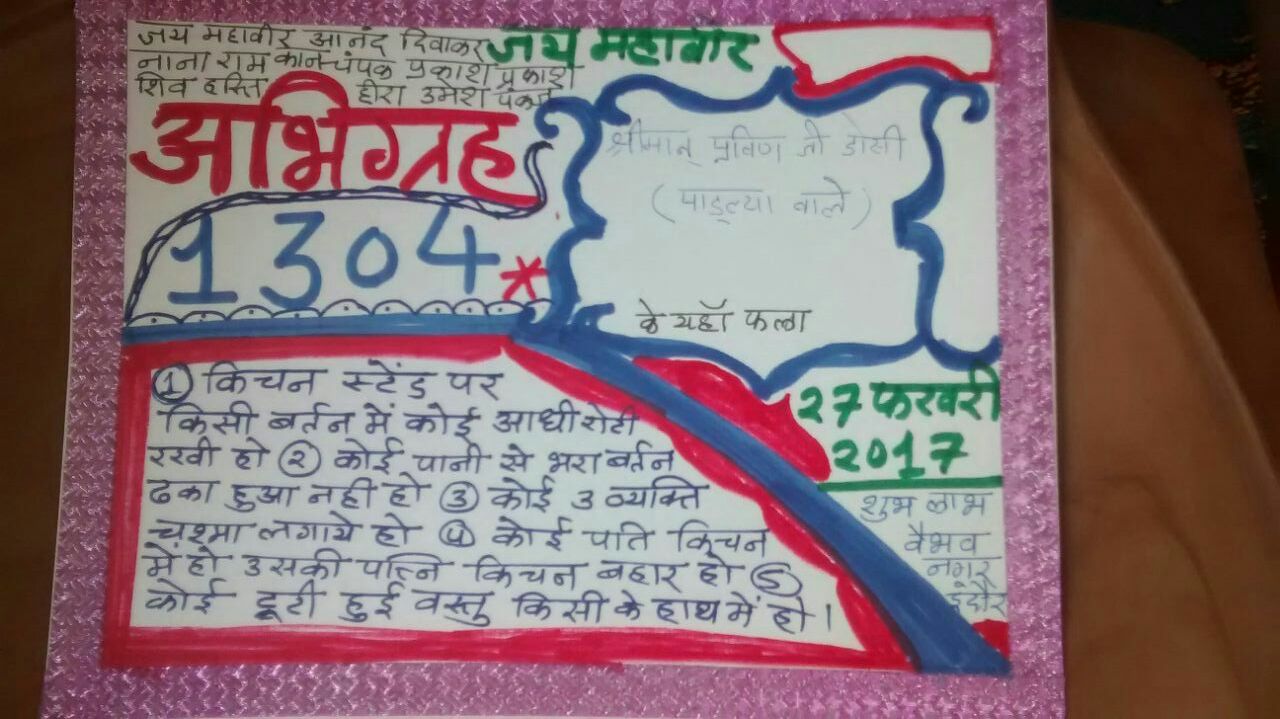 जय महावीर आनंद दिवाकर
जय महावीर
नाना राम कान चंपक प्रकाश प्रकाश
शिव हस्ति हीरा उमेश पंकज
अभिग्रह
1304*
श्रीमान् प्रविण जी डोसी
(पाड्ल्या वाले)
के यहाँ फला
① किचन स्टेंड पर
किसी बर्तन में कोई आधी रोटी
रखी हो ② कोई पानी से भरा बर्तन
ढका हुआ नही हो ③ कोई 3 व्यक्ति
चश्मा लगाये हो ④ कोई पति किचन
में हो उसकी पत्नि किचन बहार हो ⑤
कोई टूटी हुई वस्तु किसी के हाथ में हो।
27 फरवरी
2017
शुभ लाभ
वैभव
नगर
इंदौर